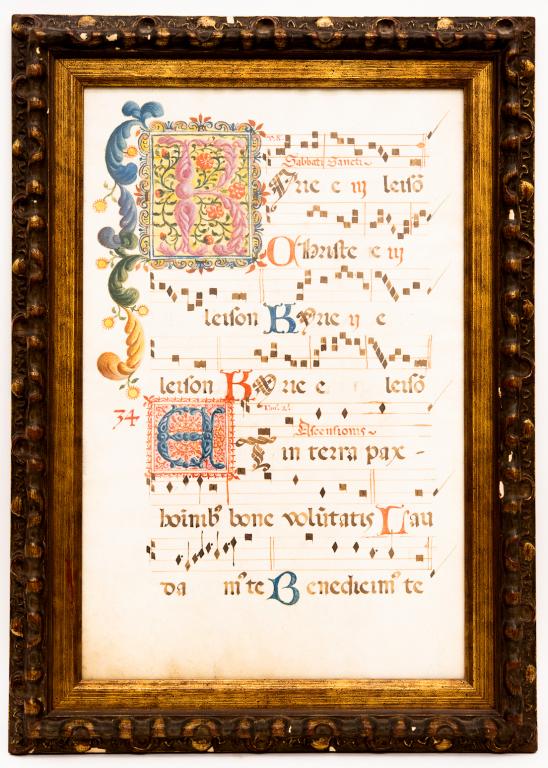 Sabbati Sancti
Kyrie e iij leisō
Christe e iij
leison Kyrie ij e
leison Kyrie e leisō
34
Ascensionis
Et in terra pax -
hoinib⁹ bone volūtatis Lau
da m⁹ te Benedicim⁹ te